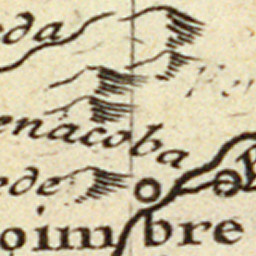 eda
enacoba
ede
oimbre